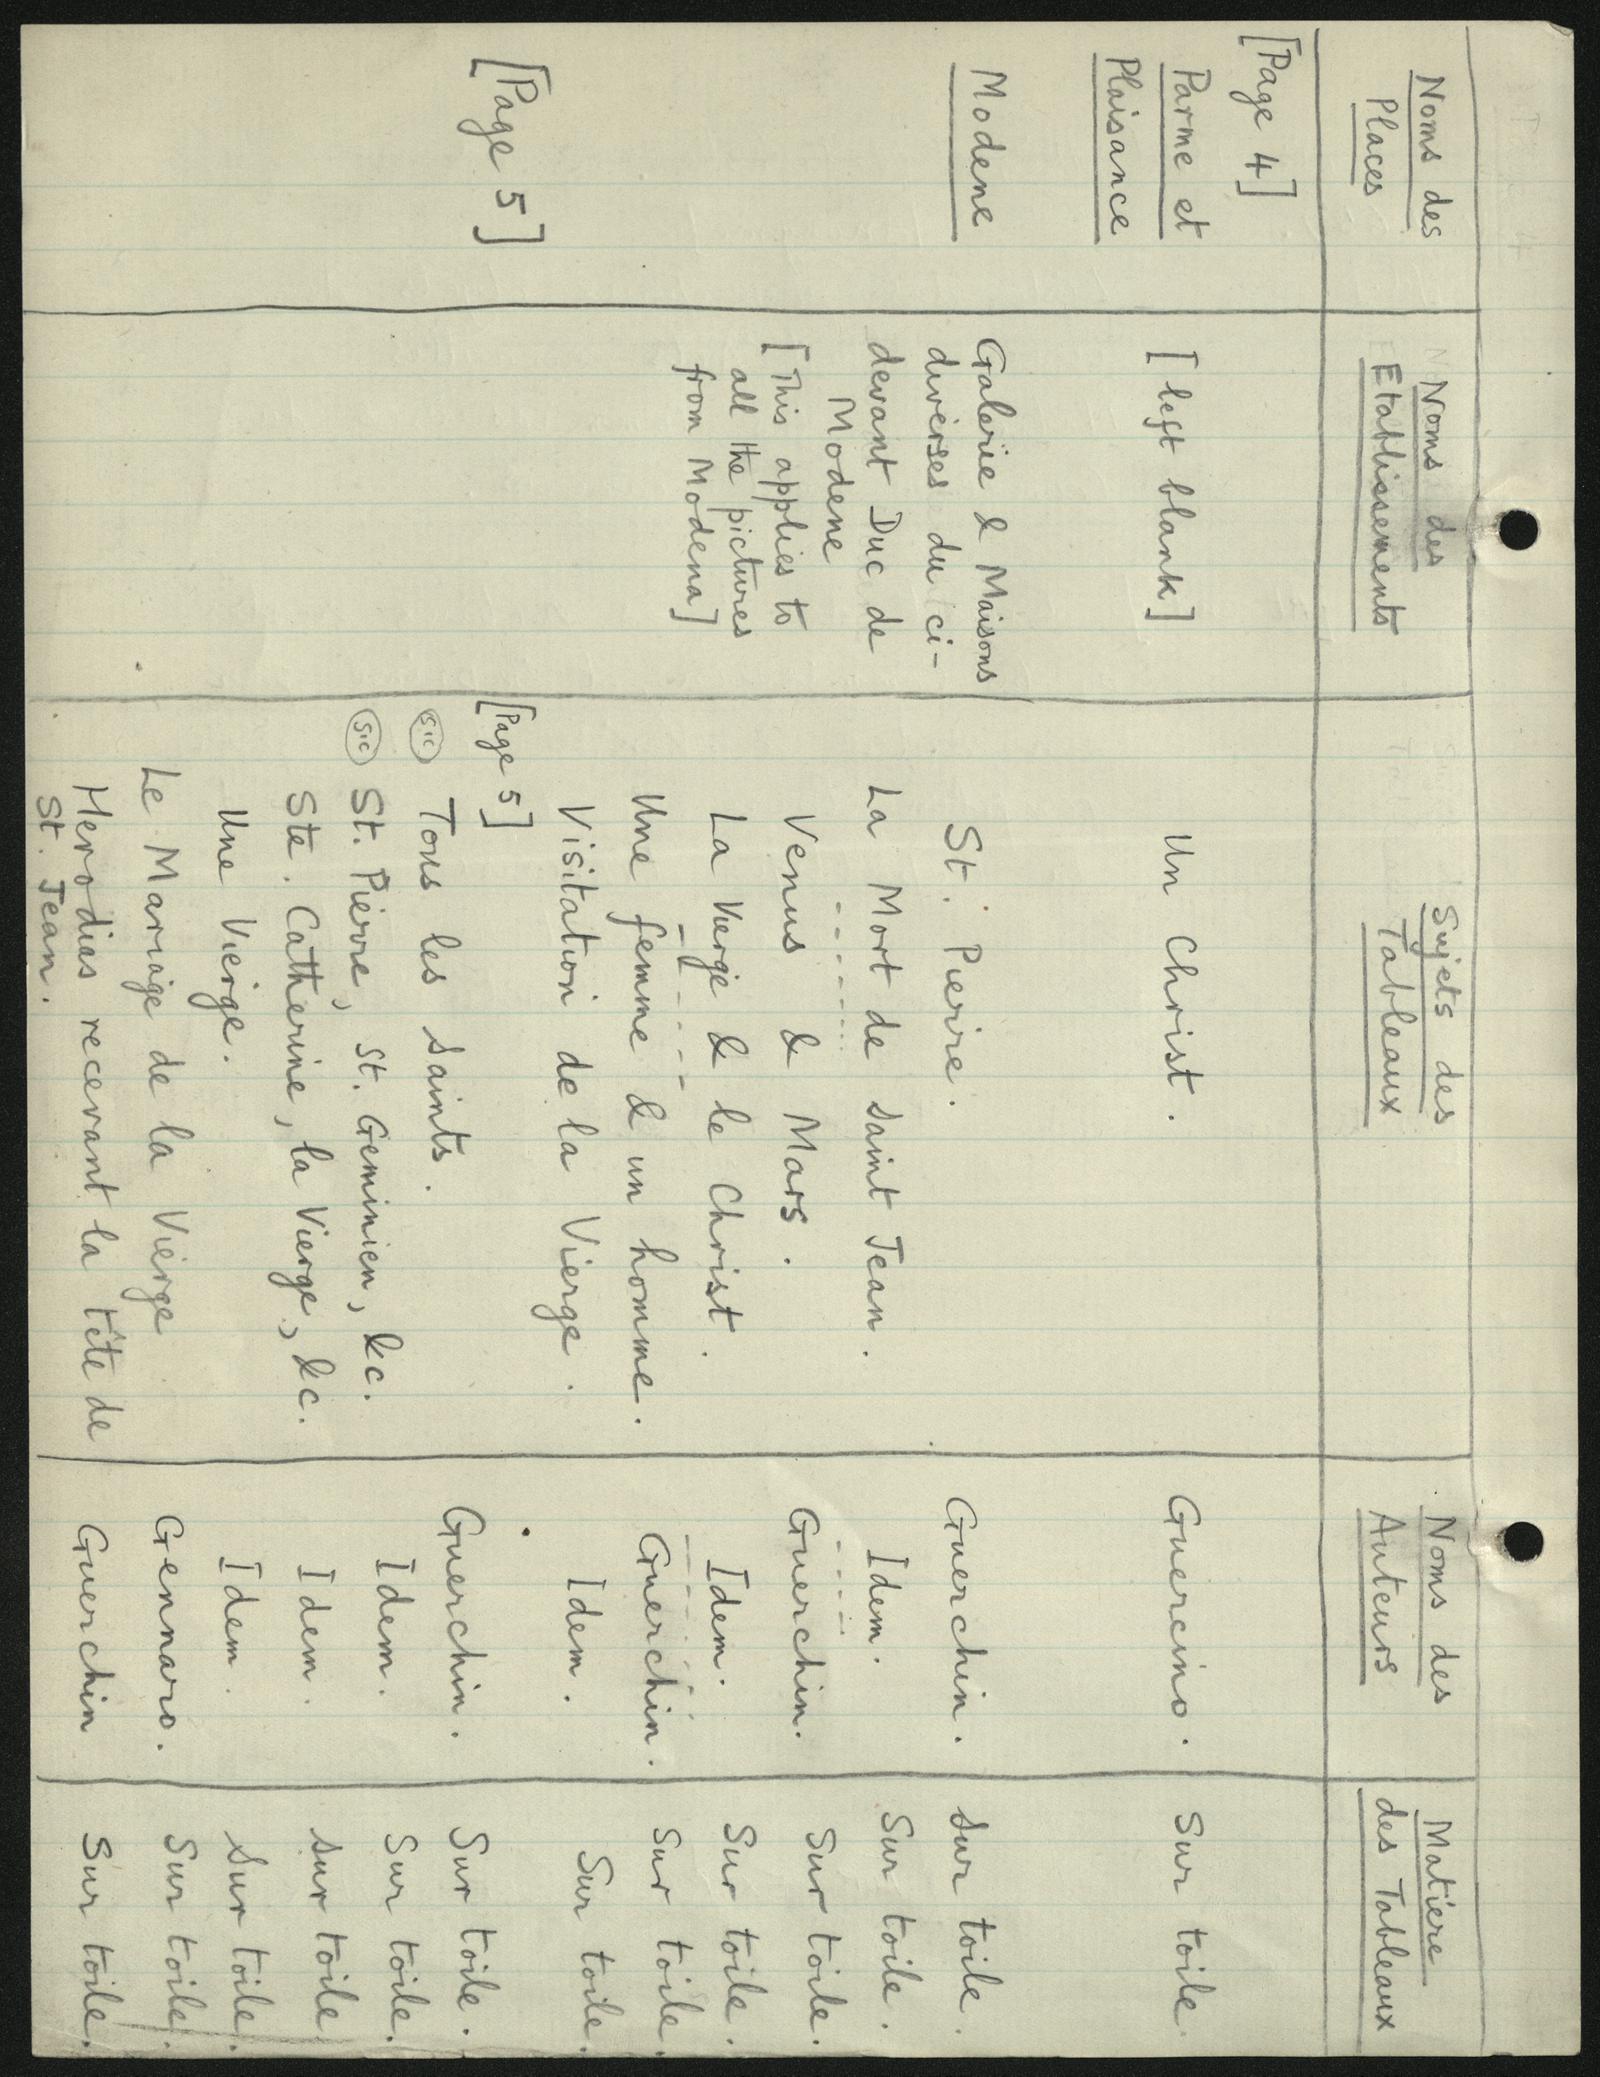 Noms des Places
Noms des Etablissements
Sujets des Tableaux
Noms des Auteurs
Matière des Tableaux
[Page 4]
Parme et Plaisance
[left blank]
Un Christ.
Guercino.
Sur toile.
Modene
Galerie & Maisons
diverses du ci-
devant Duc de
Modene
[This applies to
all the pictures
from Modena]
St. Pierre. Guerchin. Sur toile.
La Mort de Saint Jean. Idem. Sur toile.
Venus & Mars. Guerchin. Sur toile.
La Vierge & le Christ. Idem. Sur toile.
Une femme & un homme. Guerchin. Sur toile.
Visitation de la Vierge. Idem. Sur toile.
[Page 5]
[Page 5]
(sic) Tous les Saints. Guerchin. Sur toile.
(sic) St. Pierre, St. Geminien, &c. Idem. Sur toile.
Ste. Catherine, la Vierge, &c. Idem. Sur toile.
Une Vierge. Idem. Sur toile.
Le Mariage de la Vierge Gennaro. Sur toile.
Herodias recevant la tête de Guerchin Sur toile.
St. Jean.